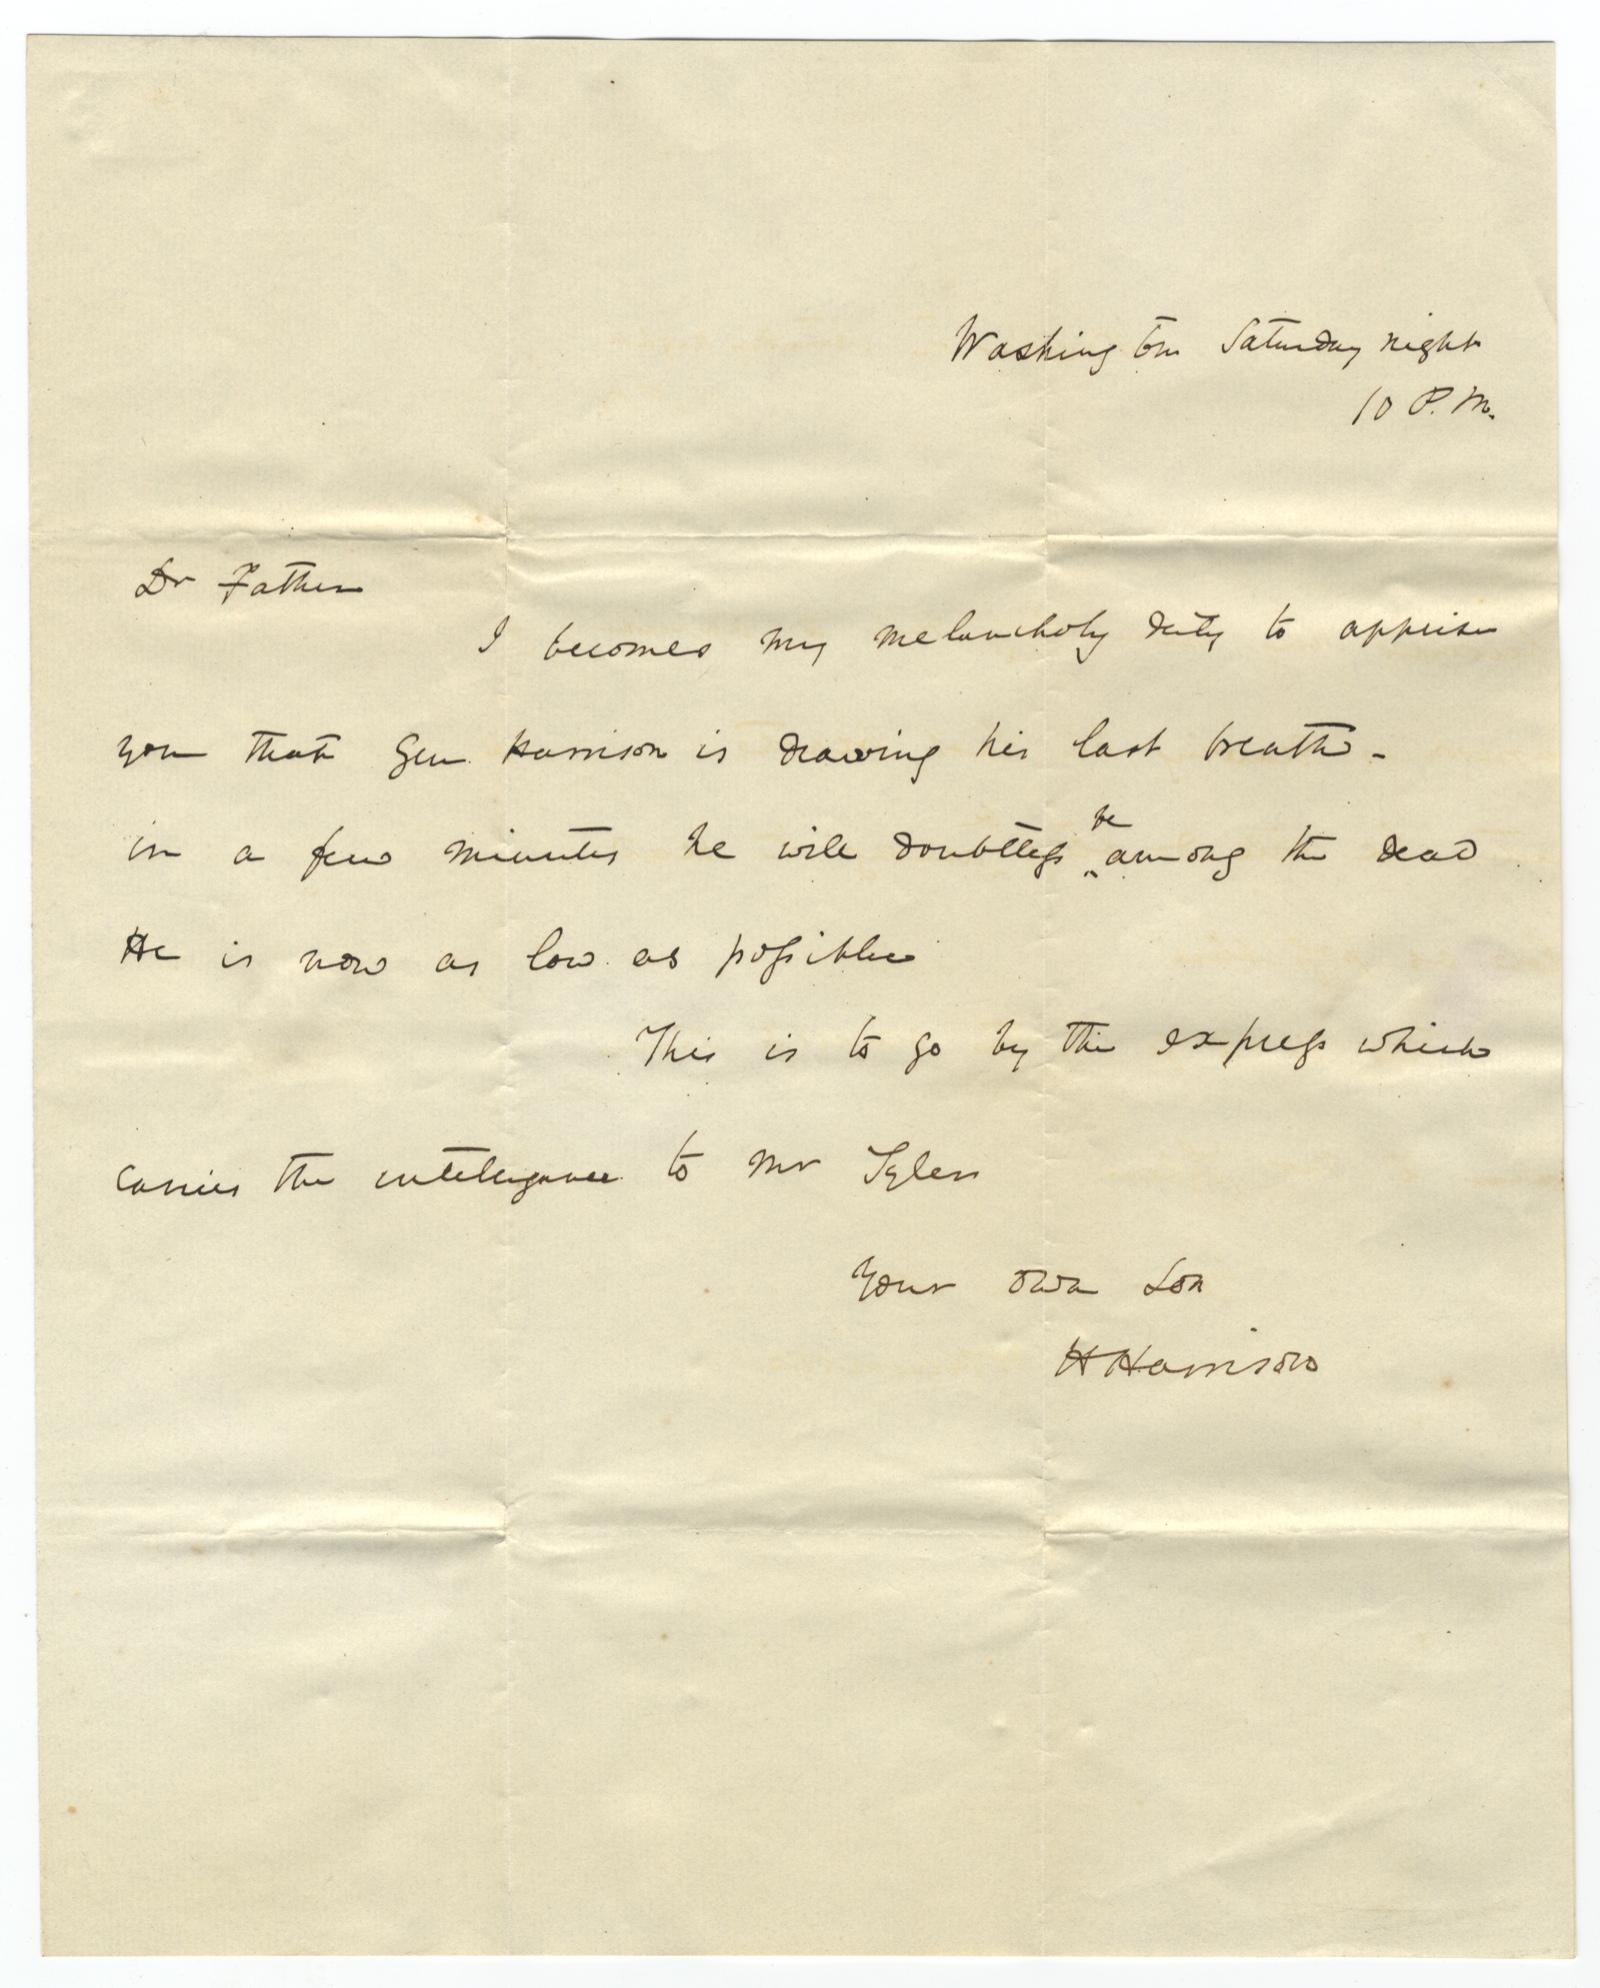 Washington Saturday night
10 P.M.
Dr Father
I becomes my melancholy duty to apprise
you that Gen. Harrison is drawing his last breath -
in a few minutes he will doubtless be among the dead
He is now as low as possible
This is to go by the express which
carries the intelligence to Mr Tyler
Your own Son
H Harrison